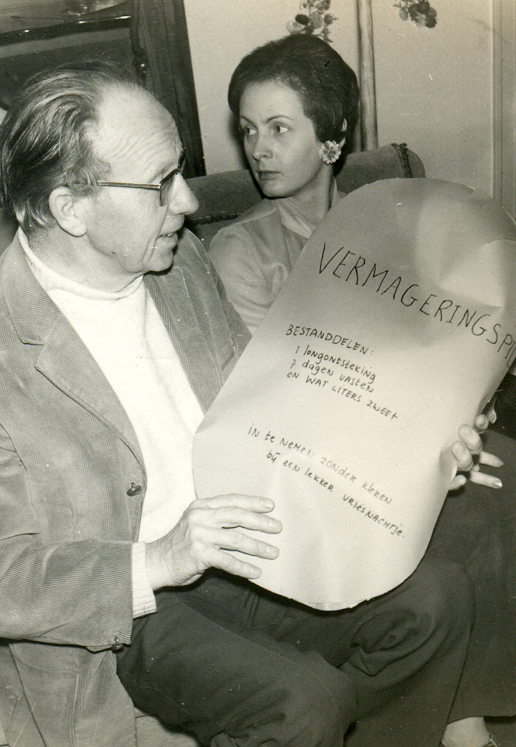 VERMAGERINGSPI
BESTANDDELEN:
1 longontsteking
7 dagen vasten
en WAT LITERS ZWEET
in te nemen zonder kleren
bij een lekker vriesnachtje.